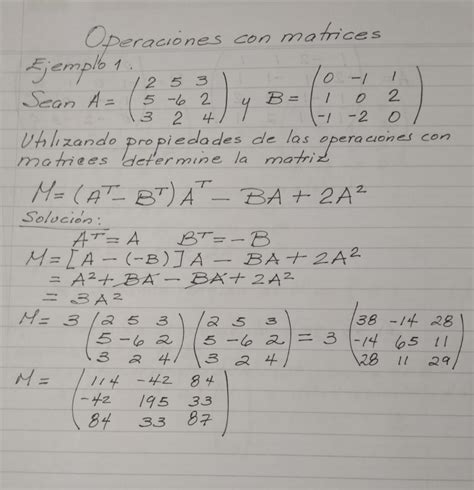 Operaciones con matrices
Ejemplo 1.
Sean A = (2 5 3; 5 -6 2; 3 2 4) y B = (0 -1 1; 1 0 2; -1 -2 0)
Utilizando propiedades de las operaciones con
matrices determine la matriz
M = (Aᵀ - Bᵀ)Aᵀ - BA + 2A²
Solución:
Aᵀ = A Bᵀ = -B
M = [A - (-B)]A - BA + 2A²
= A² + BA - BA + 2A²
= 3A²
M = 3 (2 5 3; 5 -6 2; 3 2 4) (2 5 3; 5 -6 2; 3 2 4) = 3 (38 -14 28; -14 65 11; 28 11 29)
M = (114 -42 84; -42 195 33; 84 33 87)